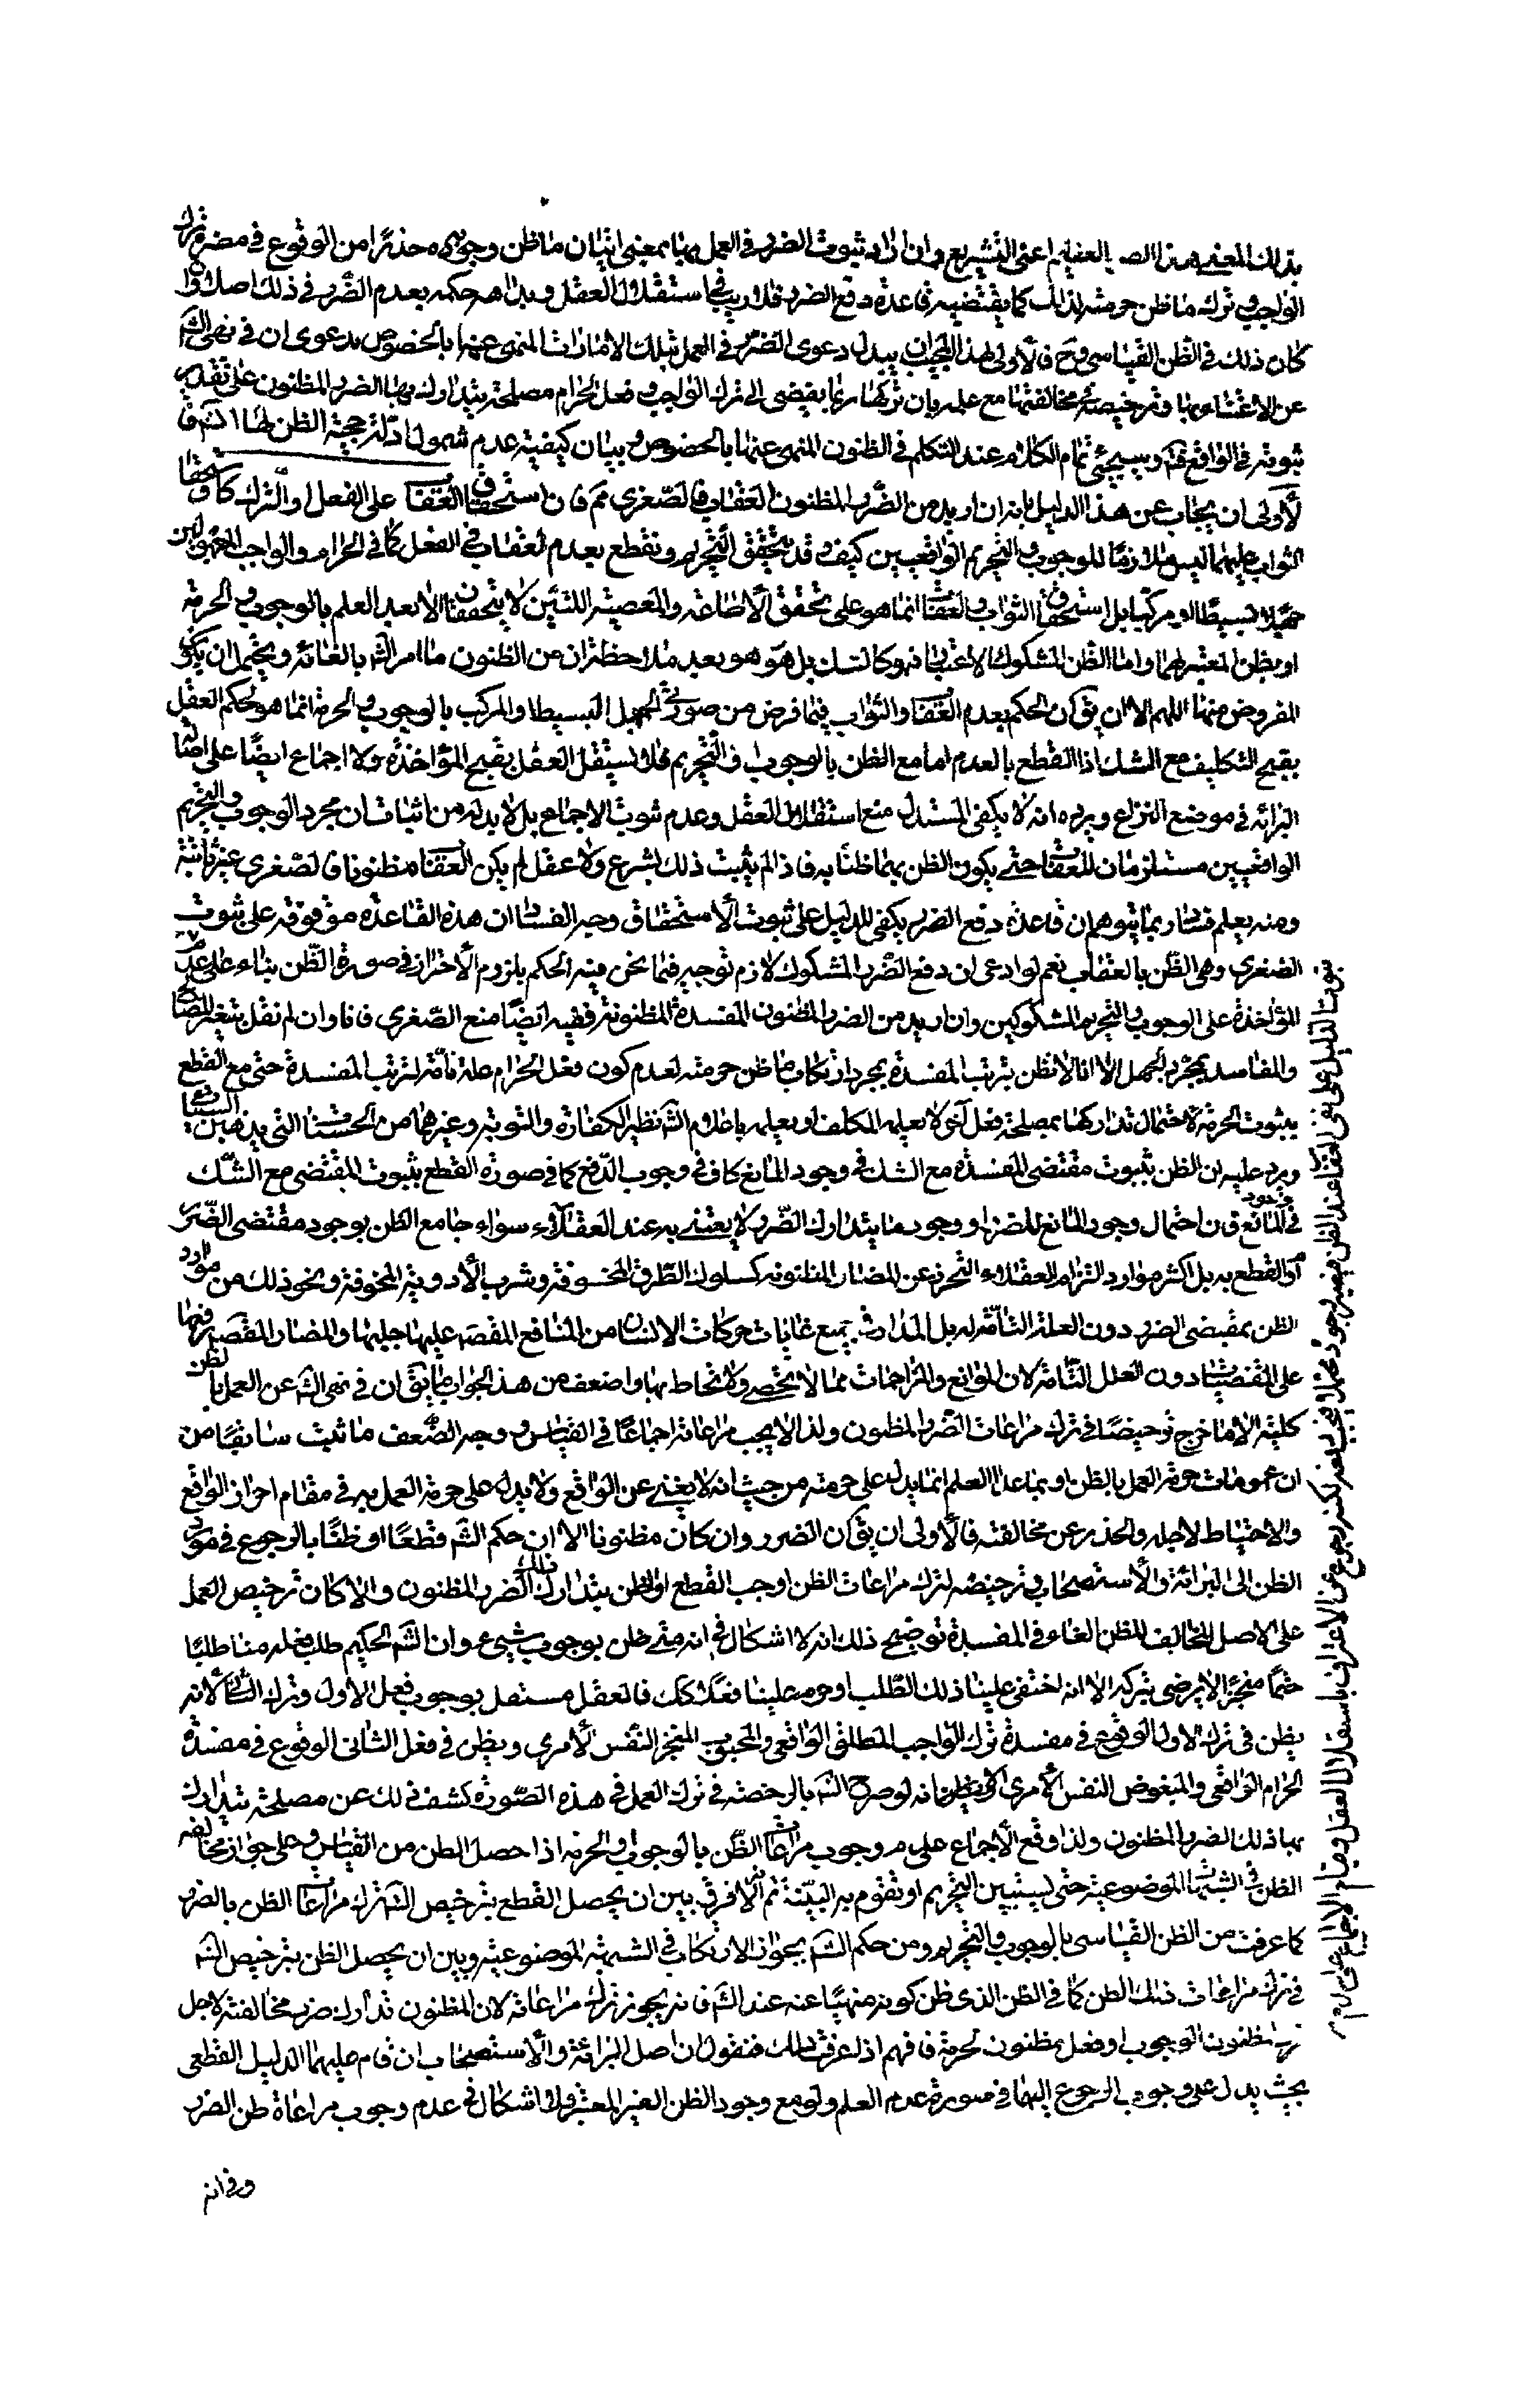 بذلك المعنى هذا الضرر العقلي اعنى التشريع وان اراد ثبوت الضرر فى العمل بها بمعنى اتيان ما ظن وجوبه حذرا من الوقوع فى مضرة ترك
الواجب وترك ما ظن حرمته لذلك كما يقتضيه قاعدة دفع الضرر فلا ريب فى استقلال العقل وبداهة حكمه بعدم الضرر فى ذلك اصلا وان
كان ذلك فى الظن القياسى وح فالأولى لهذا المجيب ان يبدل دعوى الضرر فى العمل بتلك الامارات المنهى عنها بالخصوص بدعوى ان فى نهى الشم
عن الاعتناء بها وترخيصه فى مخالفتها مع علمه بان تركها ربما يفضى الى ترك الواجب وفعل الحرام مصلحة يتدارك بها الضرر المظنون على تقدير
ثبوته فى الواقع فتم وسيجيئ تمام الكلام عند التكلم فى الظنون المنهى عنها بالخصوص وبيان كيفية عدم شمول ادلة حجية الظن لها انشم فا
لأولى ان يجاب عن هذا الدليل بانه ان اريد من الضرر المظنون العقاب فالصغرى مم فان استحقاق العقاب على الفعل او الترك كاستحقاق
الثواب عليهما ليس ملازما للوجوب والتحريم الواقعيين كيف وقد يتحقق التحريم ونقطع بعدم العقاب فى الفعل كما فى الحرام والواجب المجهولين
جهلا بسيطا او مركبا بل استحقاق الثواب والعقاب انما هو على تحقق الأطاعة والمعصية اللتين لا يتحققان الا بعد العلم بالوجوب والحرمة
او بظن المعتبر بهما واما الظن المشكوك الاعتبار فهو كالشك بل هو هو بعد ملاحظة ان من الظنون ما امر الشم بالغائه ويحتمل ان يكون
المفروض منها اللهم الا ان يق ان الحكم بعدم العقاب والثواب فيما فرض من صورتى الجهل البسيط والمركب بالوجوب والحرمة انما هو لحكم العقل
بقبح التكليف مع الشك او القطع بالعدم اما مع الظن بالوجوب او التحريم فلا يستقل العقل بقبح المؤاخذة ولا اجماع ايضا على اصالة
البرائة فى موضع النزاع ويرده انه لا يكفى المستدل منع استقلال العقل وعدم ثبوت الاجماع بل لا بد له من اثبات ان مجرد الوجوب والتحريم
الواقعيين مستلزمان للعقاب حتى يكون الظن بهما ظنا به فاذا لم يثبت ذلك بشرع ولا عقل لم يكن العقاب مظنونا فالصغرى غير ثابتة
ومنه يعلم فساد ربما يتوهم ان قاعدة دفع الضرر يكفى للدليل على ثبوت الأستحقاق وجه الفساد ان هذه القاعدة موقوفة على ثبوت
الصغرى وهى الظن بالعقاب نعم لو ادعى ان دفع الضرر المشكوك لازم توجه فيما نحن فيه الحكم بلزوم الأحتراز فى صورة الظن بناء على عدم
ثبوت الدليل على نفى العقاب عند الظن فيصير وجوده محتملا فيجب دفعه لكنه رجوع عن الاعتراف باستقلال العقل وقيام الاجماع على عدم
المؤاخذة على الوجوب والتحريم المشكوكين وان اريد من الضرر المظنون المفسدة المظنونة ففيه ايضا منع الصغرى فانا وان لم نقل بتغير المصالح
والمفاسد بمجرد الجهل الا انا لا نظن بترتب المفسدة بمجرد ارتكاب ما ظن حرمته لعدم كون فعل الحرام علة تامة لترتب المفسدة حتى مع القطع
بثبوت الحرمة لاحتمال تداركها بمصلحة فعل آخر لا يعلمه المكلف او يعلمه باعلام الشم نظير الكفارة والتوبة وغيرهما من الحسنات التى يذهبن السيئات
ويرد عليه ان الظن بثبوت مقتضى المفسدة مع الشك فى وجود المانع كاف فى وجوب الدفع كما فى صورة القطع بثبوت المقتضى مع الشك
فى وجود المانع فان احتمال وجود المانع للضرر او وجود ما يتدارك الضرر لا يعتنى به عند العقلاء سواء جامع الظن بوجود مقتضى الضرر
أو القطع به بل اكثر موارد التزام العقلاء التحرز عن المضار المظنونة كسلوك الطرق المخوفة وشرب الأدوية المخوفة ونحو ذلك من موارد
الظن بمقتضى الضرر دون العلة التامة له بل المدار فى جميع غايات حركات الانسان من المنافع المقصود عليها جلبها والمضار المقصود رفعها
على المقتضيات دون العلل التامة لان الموانع والمزاحمات مما لا تحصى ولا يحاط بها واضعف من هذا الجواب ما يق ان فى نهى الشم عن العمل بالظن
كلية الا ما خرج ترخيصا فى ترك مراعات الضرر المظنون ولذا لا يجب مراعاته اجماعا فى القياس ووجه الضعف ما ثبت سابقا من
ان عمومات حرمة العمل بالظن او بما عدا العلم انما يدل على حرمته من حيث انه لا يغنى عن الواقع ولا يدل على حرمة العمل به فى مقام احراز الواقع
والاحتياط لاجله والحذر عن مخالفته فالأولى ان يق ان الضرر وان كان مظنونا الا ان حكم الشم قطعا او ظنا بالرجوع فى مورد
الظن الى البرائة والأستصحاب وترخيصه لترك مراعات الظن اوجب القطع او الظن بتدارك ذلك الضرر المظنون والا كان ترخيص العمل
على الاصل المخالف للظن القاء فى المفسدة توضيح ذلك انه لا اشكال فى انه متى ظن بوجوب شيئ وان الشم الحكيم طلب فعله منا طلبا
حتما منجزا لا يرضى بتركه الا انه اختفى علينا ذلك الطلب او حرم علينا فعلا كك فالعقل مستقل بوجوب فعل الاول وترك الثانى لأنه
يظن فى ترك الاول الوقوع فى مفسدة ترك الواجب المطلق الواقعى والمحبوب المنجز النفس الأمرى ويظن فى فعل الثانى الوقوع فى مفسدة
الحرام الواقعى والمبغوض النفس الأمرى الا انه لو صرح الشم بالرخصة فى ترك العمل فى هذه الصورة كشف ذلك عن مصلحة يتدارك
بها ذلك الضرر المظنون ولذا وقع الأجماع على عدم وجوب مراعات الظن بالوجوب او الحرمة اذا حصل الظن من القياس وعلى جواز مخالفة
الظن فى الشبهات الموضوعية حتى يستبين التحريم او تقوم به البينة ثم انه لا فرق بين ان يحصل القطع بترخيص الشم ترك مراعات الظن بالضرر
كما عرفت من الظن القياسى بالوجوب والتحريم ومن حكم الشم بجواز الارتكاب فى الشبهة الموضوعية وبين ان يحصل الظن بترخيص الشم
فى ترك مراعات ذلك الظن كما فى الظن الذى ظن كونه منهيا عنه عند الشم فانه يجوز ترك مراعاته لان المظنون تدارك ضرر مخالفته لاجل
ترك مظنون الوجوب او فعل مظنون الحرمة فافهم اذا عرفت ذلك فنقول ان اصل البرائة والأستصحاب ان قام عليهما الدليل القطعى
بحيث يدل على وجوب الرجوع اليهما فى صورة عدم العلم ولو مع وجود الظن الغير المعتبر فلا اشكال فى عدم وجوب مراعاة ظن الضرر
وفى انه